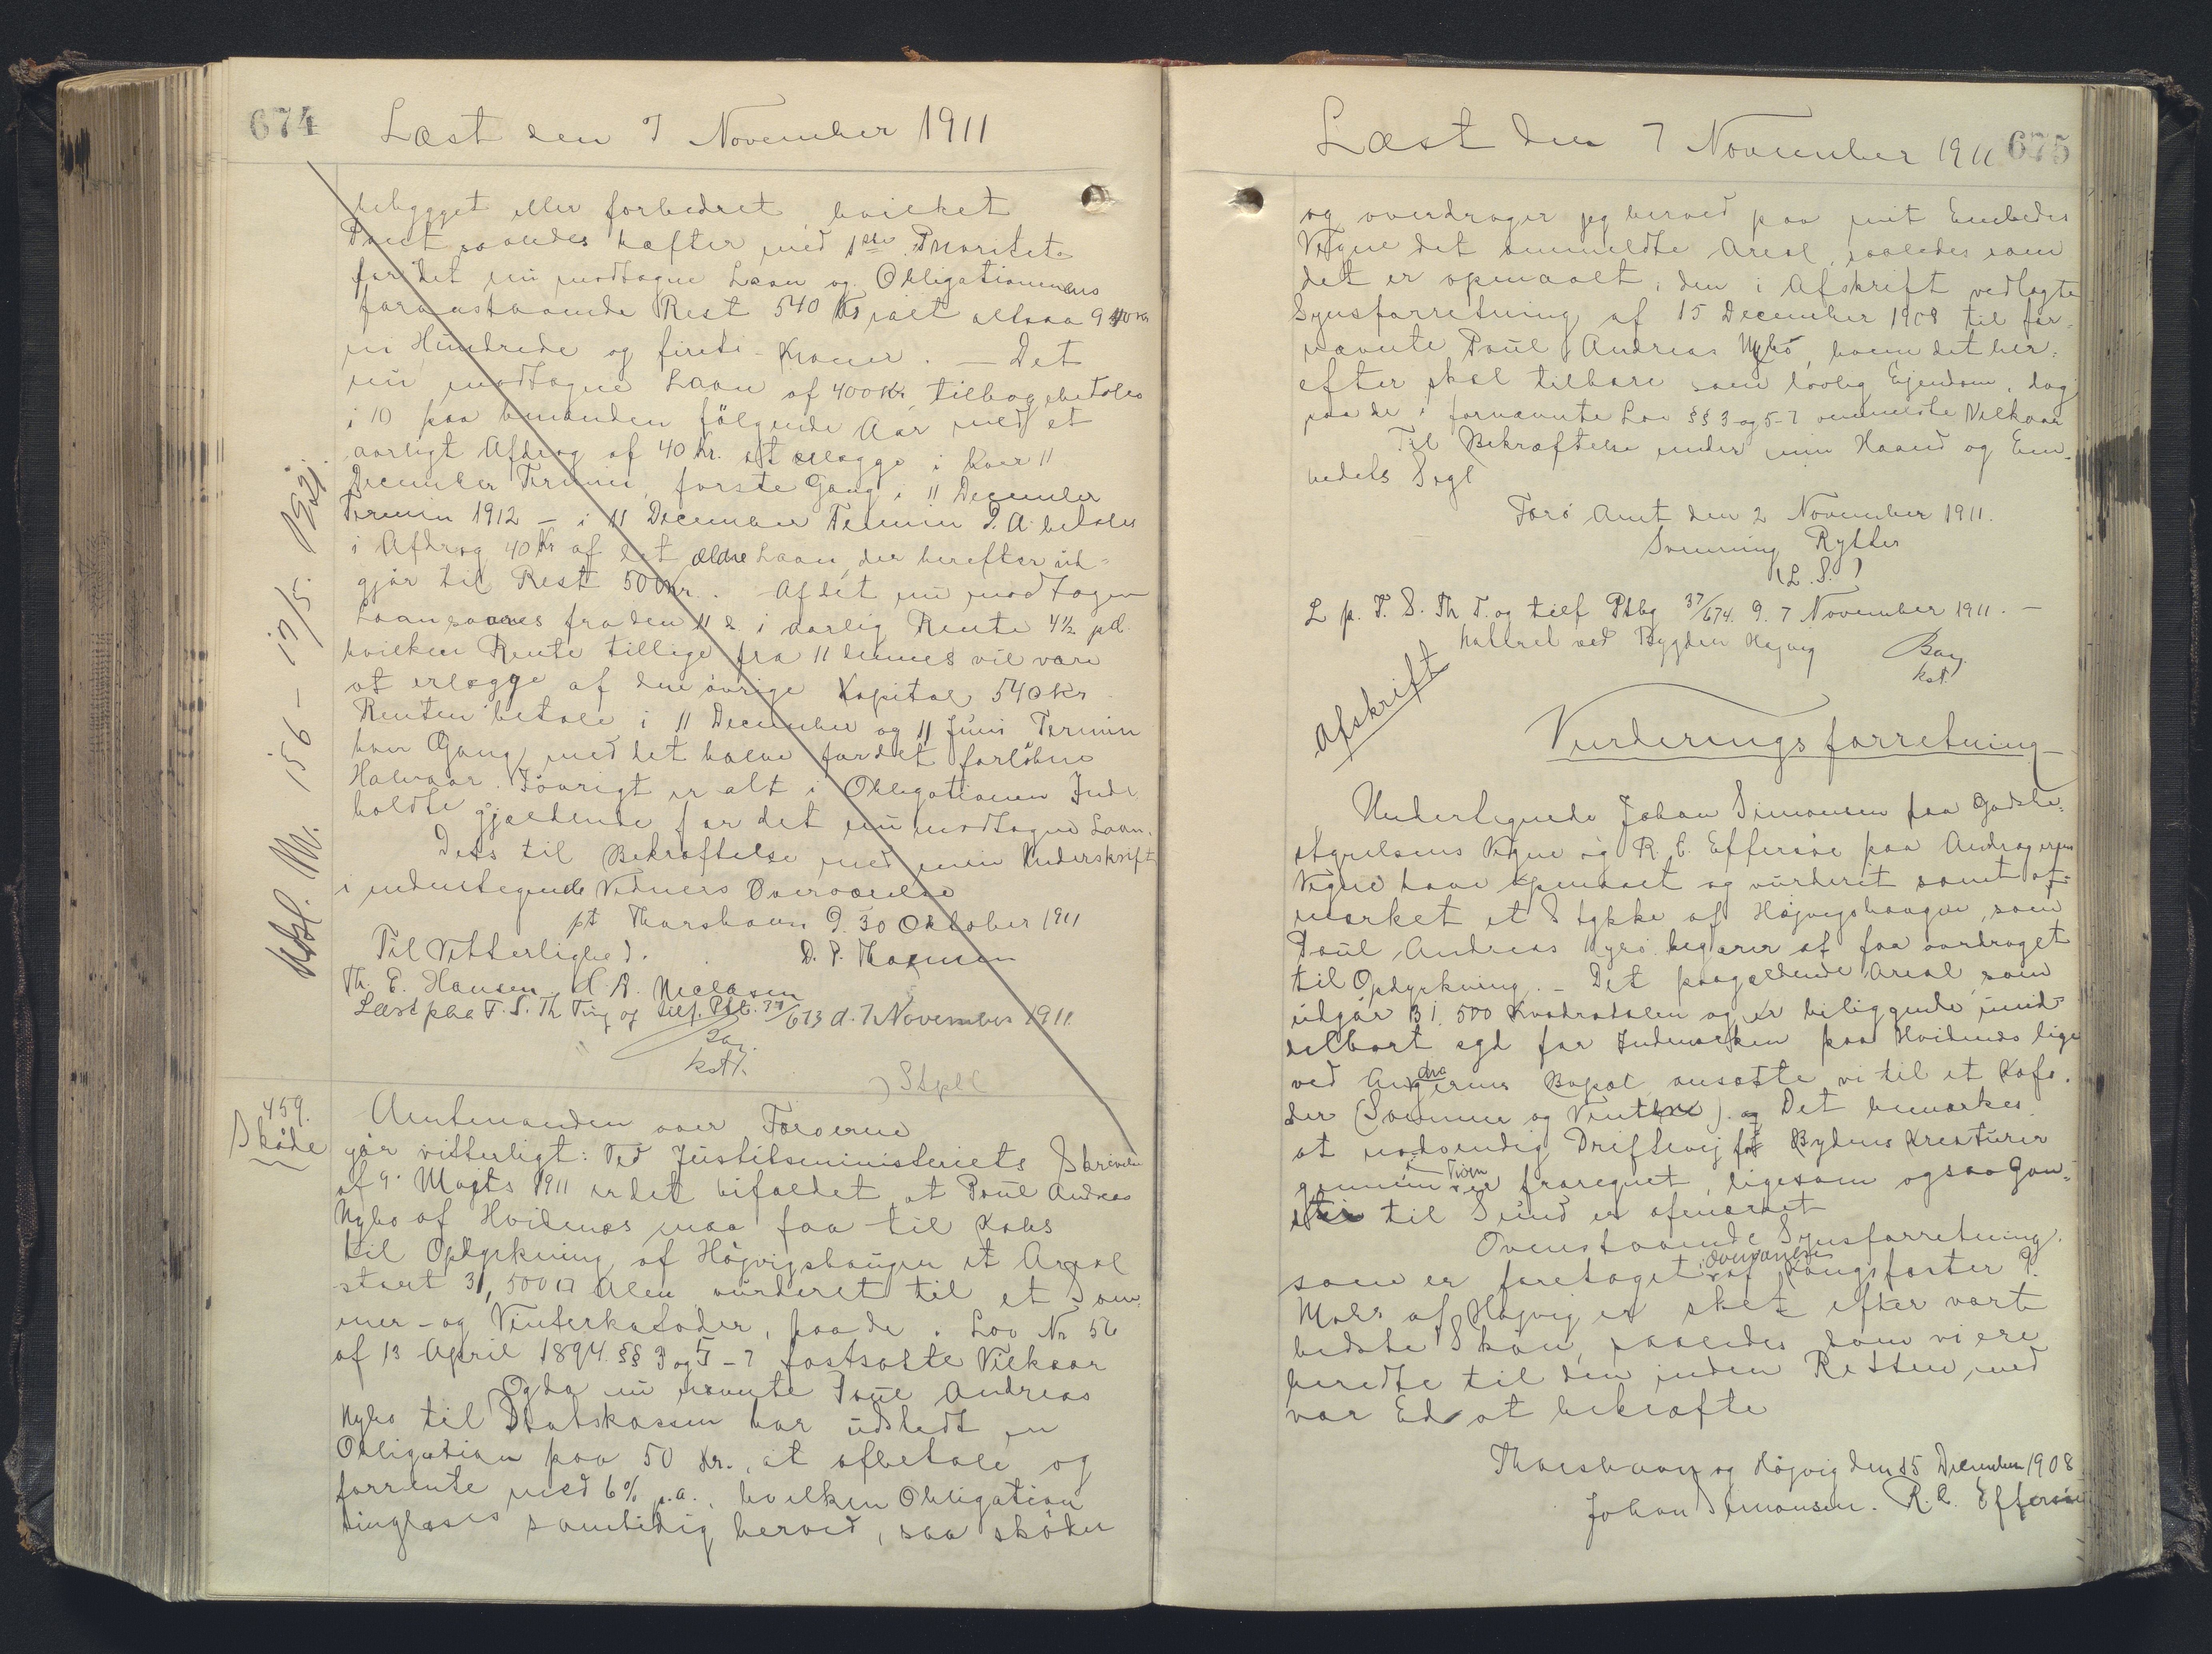 674
Læst den 7 November 1911
bebygget eller forbedret, hvilket
Pant saaledes hæfter med 1ste Prioritet
for det nu modtagne Laan og Obligationens
foranstaaende Rest 540 Kr ialt altsaa 940 Kr
ni Hundrede og fireti Kroner. — Det
nu modtagne Laan af 400 Kr. tilbagebetales
i 10 paa hinanden følgende Aar med et
aarligt Afdrag af 40 Kr. at erlægge i hver 11
December Termin, første Gang i 11 December
Termin 1912 — i 11 December Termin d. A. betales
i Afdrag 40 Kr af det ældre Laan, der herefter ud-
gjør til Rest 500 Kr. Af det nu modtagne
Laan svares fra den 11 d. i aarlig Rente 4½ pCt.
hvilken Rente tillige fra 11 dennes vil være
at erlægge af den øvrige Kapital 540 Kr
Renten betale i 11 December og 11 Juni Termin
hver Gang med det halve for det forløbne
Halvaar. Iøvrigt er alt i Obligationen Inde-
holdte gjældende for det nu modtagne Laan.
Dets til Bekræftelse med min Underskrift
i undertegnede Vidners Overværelse
pt Thorshavn d. 30 Oktober 1911
Til Vitterlighed. D. P. Thomsen
Th. E. Hansen. H. A. Niclasen
Læst paa F. S. Th Ting og tilf. Ptb. 37/673 d. 7 November 1911.
Bay.
kst.
Stpbl
Udsl. M. 156 — 17/5.
459.
Skøde
Amtmanden over Færøerne
gør vitterligt: Ved Justitsministeriets Skrivelse
af 9. Marts 1911 er det bifaldet at Poul Andreas
Nybo af Hvidenæs maa faa til Købs
til Opdyrkning af Højvigshaugen et Areal
stort 31,500 □ Alen vurderet til et Som-
mer- og Vinterkøfoder, paa de i Lov No 56
af 13 April 1894 §§ 3 og 5-7 fastsatte Vilkaar
Og da nu nævnte Poul Andreas
Nybo til Statskassen har udstedt en
Obligation paa 50 Kr., at afbetale og
forrente med 6% p.a., hvilken Obligation
tinglæses samtidig hermed, saa skøder
Læst den 7 November 1911
675
og overdrager jeg herved paa mit Embedes
Vegne det ommeldte Areal, saaledes som
det er opmaalt i den i Afskrift vedlagte
Synsforretning af 15 December 1908 til før-
nævnte Poul Andreas Nybo, hvem det her-
efter skal tilhøre som lovlig Ejendom, dog
paa de i fornævnte Lov §§ 3 og 5-7 ommeldte Vilkaar
Til Bekræftelse under min Haand og Em-
bedets Segl
Færø Amt den 2 November 1911.
Svenning Rytter
(L. S.)
L p. F. S. Th T. og tilf Ptbg 37/674. d. 7 November 1911. —
Mattrel ved Bygden Højvig
Bay
kst.
Afskrift
Vurderingsforretning
Undertegnede Johan Simonsen paa Godsbe-
styrelsens Vegne og R. C. Effersøe paa Andragerens
Vegne have opmaalt og vurderet samt af-
mærket et Stykke af Højvigshaugen, som
Poul Andreas Nybo begærer at faa overdraget
til Opdyrkning. — Det paagældende Areal, som
udgør 31,500 Kvadratalen og er beliggende umid-
delbart syd for Indmarken paa Hvidenæs lige
ved Andragerens Bopæl, ansatte vi til et Køfo-
der (Sommer og Vinter). og Det bemærkes
at nødvendig Driftevej for Bydens Kreaturer
gennem Trøen er fraregnet, ligesom ogsaa Gang-
sti til Sund er afmærket
Ovenstaaende Synsforretning.
som er foretaget i Overværelse af Kongsfæster P.
Mohr af Højvig er sket efter vort
bedste Skøn, saaledes som vi ere
beredte til den inden Retten med
vor Ed at bekræfte
Thorshavn og Højvig den 15 December 1908
Johan Simonsen. R. C. Effersøe